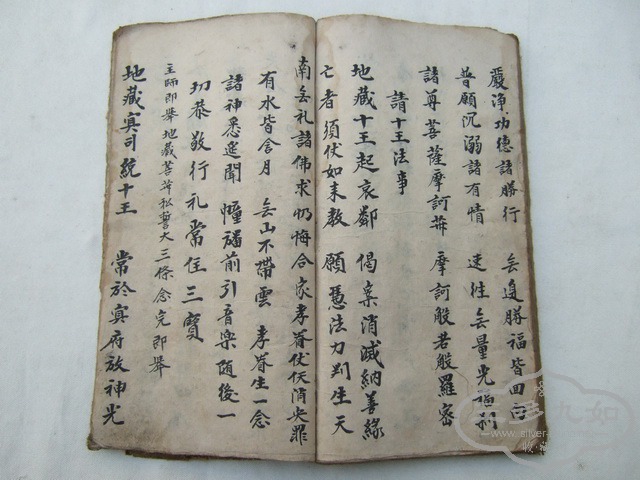 嚴淨功德諸勝行 㒵邊勝福皆回向
普願沉溺諸有情 速徃㒵量光佛刹
諸尊菩薩摩訶薩 摩訶般若般羅密
請十王法事
地藏十王起哀鄰 偈棄消滅納善緣
亡者須伏如来教 願慿法力刘生天
南無礼諸佛求忉悔合家孝眷仗仸消夬罪
有水皆含月 㒵山不帶雲 孝眷生一念
諸神悉遥聞 幢旛前引音樂随後一
切恭敬行礼常住三寳
主師即舉地藏菩薩私誓大三條念完即舉
地藏冥司統十王 常於冥府放神光